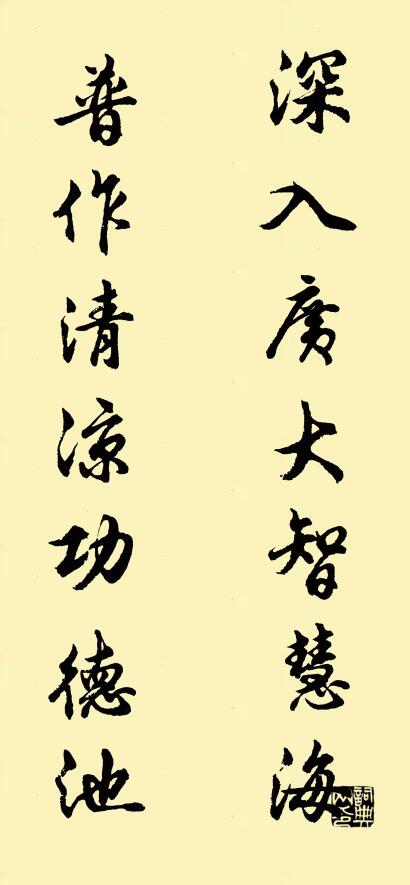 深入廣大智慧海
普作清涼功德池